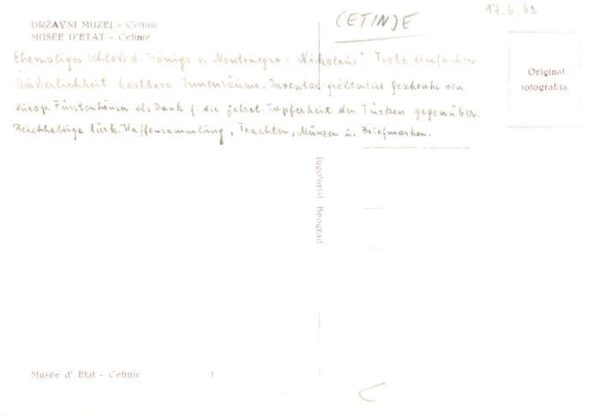 CETINJE
17.6.63
DRŽAVNI MUZEJ - Cetinje
MUSÉE D'ETAT - Cetinje
Ehemaliges Schloss d. Königs v. Montenegro: "Nikolaus". Trotz einfacher
Äusserlichkeit kostbare Innenräume. Inventar grösstenteils Geschenke von
europ. Fürstenhäuser als Dank f. die jahrel. Tapferheit den Türken gegenüber.
Reichhaltige türk. Waffensammlung, Trachten, Münzen u. Briefmarken.
Original
fotografija
Jugoturist Beograd
Musée d' Etat - Cetinje